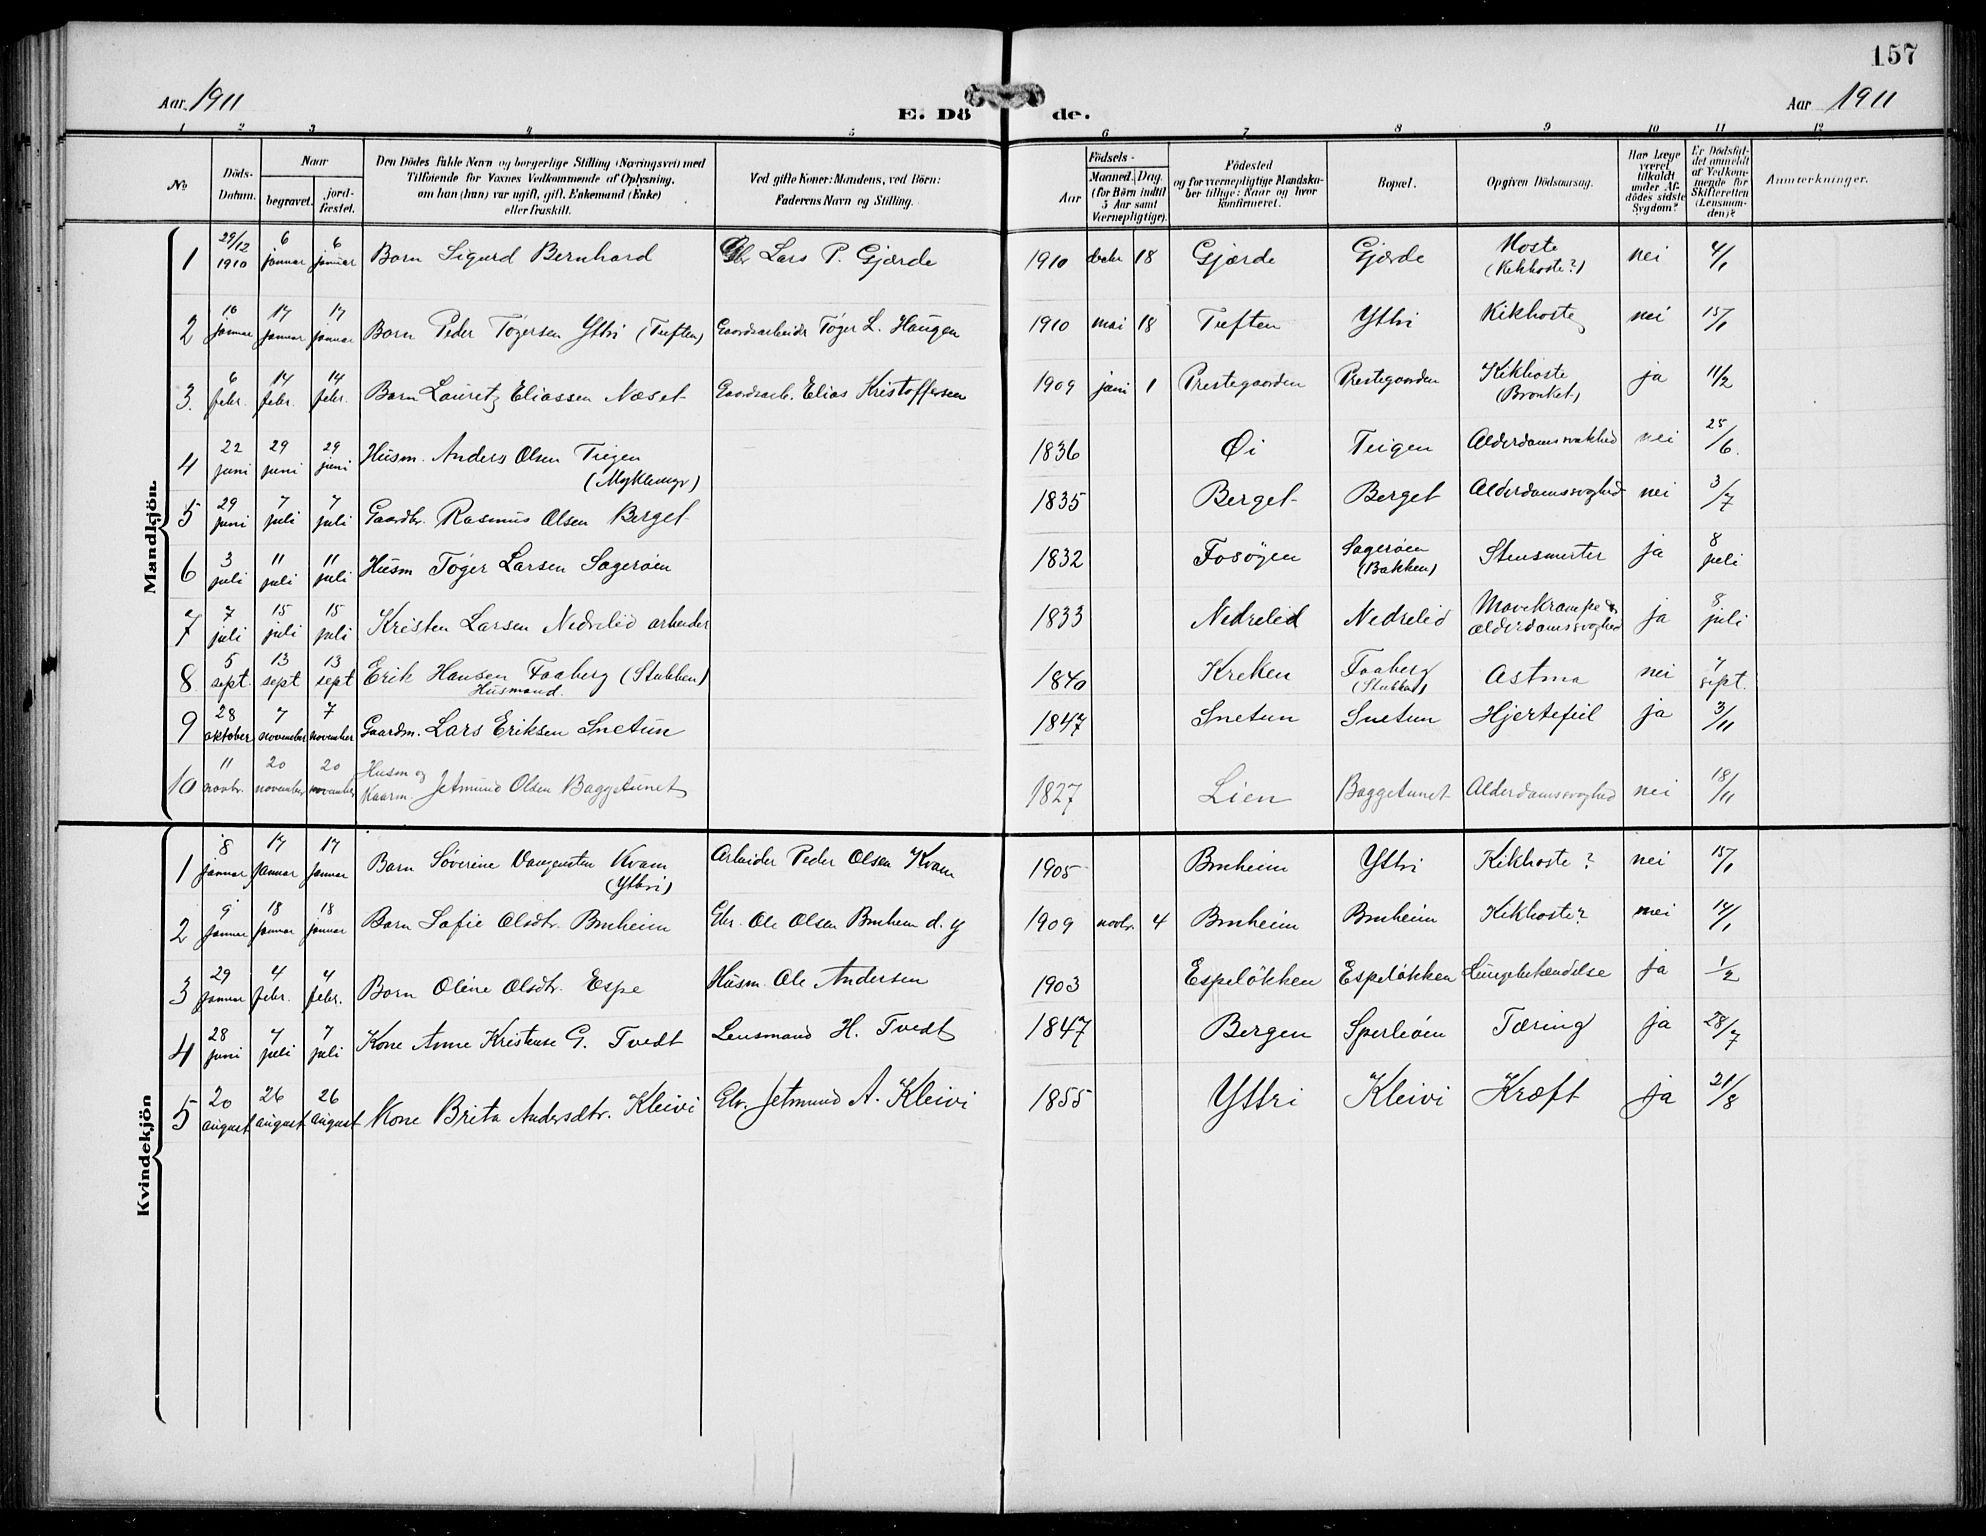 157
Aar 1911
E. Döde.
Aar 1911
1 2 3 4 5 6 7 8 9 10 11 12
No
Döds-Datum.
Naar
begravet.
jord-fæstet.
Den Dödes fulde Navn og borgerlige Stilling (Næringsvei) med
Tilföiende for Voxnes Vedkommende af Oplysning,
om han (hun) var ugift, gift, Enkemand (Enke)
eller fraskilt.
Ved gifte Koner: Mandens, ved Börn:
Faderens Navn og Stilling.
Födsels-
Aar
Maaned. Dag.
(for Börn indtil
5 Aar samt
Værnepligtige).
Födested
og for værnepligtige Mandska-
ber tillige: Naar og hvor
konfirmeret.
Bopæl.
Opgiven Dödsaarsag.
Har Læge
været
tilkaldt
under Af-
dödes sidste
Sygdom?
Er Dödsfal-
det anmeldt
af Vedkom-
mende for
Skifteretten
(Lensman-
den)?
Anmærkninger.
Mandkjön.
1 29/12 1910 6 januar 6 januar Barn Sigurd Bernhard Gbr Lars P. Gjærde 1910 decbr 18 Gjærde Gjærde Hoste (Kikhoste?) nei 4/1
2 10 januar 17 januar 17 januar Barn Peder Tøgersen Yttri (Tuften) Gaardsarbeider Tøger L. Haugen 1910 mai 18 Tuften Yttri Kikhoste nei 15/1
3. 6 febr. 14 febr. 14 febr. Barn Lauretz Eliassen Næset Gaardsarb. Elias Kristoffersen 1909 juni 1 Prestegaarden Prestegaarden Kikhoste (Bronkit) ja 11/2
4 22 juni 29 juni 29 juni Husm. Anders Olsen Teigen (Myklemyr) 1836 Øi Teigen Alderdomssvakhed nei 25/6.
5 29 juni 7 juli 7 juli Gaardbr. Rasmus Olsen Berget 1835 Berget Berget Alderdomssvaghed nei 3/7
6 3 juli 11 juli 11 juli Husm Tøger Larsen Sagerøen 1832 Fosøyen Sagerøen (Bakken) Stensmerter ja 8 juli
7 7 juli 15 juli 15 juli Kristen Larsen Nedrelid arbeider 1833 Nedrelid Nedrelid Mavekrampe & alderdomssvaghed ja 8 juli
8 5 sept. 13 sept 13 sept Erik Hansen Faaberg (Stubben) Husmand. 1840 Kreken Faaberg (Stubben) Astma nei 7 sept.
9 28 oktober 7 november 7 november Gaardm. Lars Eriksen Snetun 1847 Snetun Snetun Hjertefeil ja 3/11
10 11 novbr. 20 november 20 november Husm og Kaarm. Jetmund Olsen Baggetunet 1827 Lien Baggetunet Alderdomssvaghed nei 18/11
Kvindekjön
1 8 januar 17 januar 17 januar Barn Søverine Vangensten Kvam (Yttri) Arbeider Peder Olsen Kvam 1905 Bruheim Yttri Kikhoste? nei 15/1
2 9 januar 18 januar 18 januar Barn Sofie Olsdtr. Bruheim Gbr. Ole Olsen Bruheim d. y 1909 novbr. 4 Bruheim Bruheim Kikhoste? nei 14/1
3 29 januar 4 febr. 4 febr. Barn Oline Olsdtr. Espe Husm. Ole Andersen 1903 Espeløkken Espeløkken Lungebetændelse ja 1/2
4 28 juni 7 juli 7 juli Kone Anne Kristense G. Tvedt Lensmand H. Tvedt 1847 Bergen Sperleøen Tæring ja 28/7
5 20 august 26 august 26 august Kone Brita Andersdtr. Kleivi Gbr. Jetmund A. Kleivi 1855 Yttri Kleivi Kræft ja 21/8